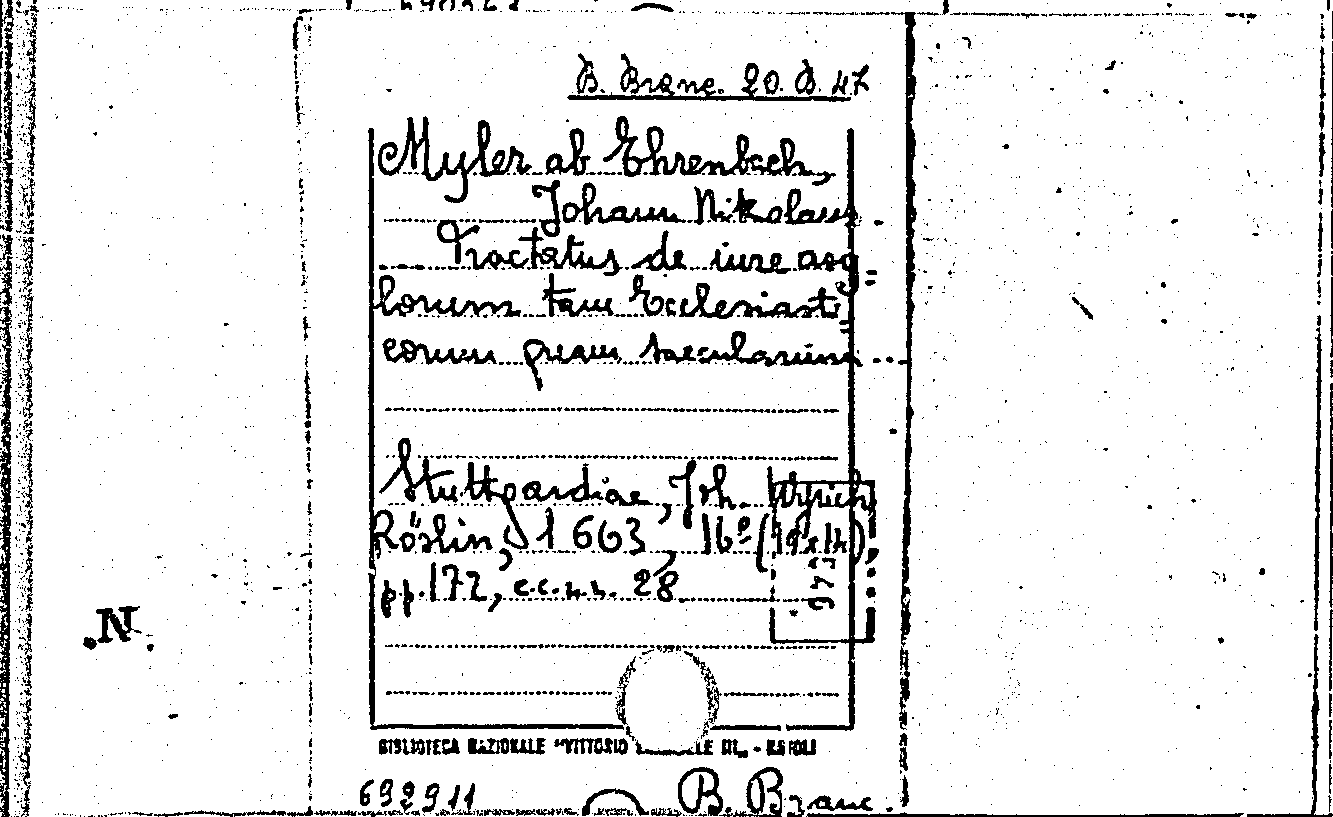 B. Branc. 20. B. 47
Myler ab Ehrenbach,
Johann Nikolaus.
Tractatus de iure asy=
lorum tam Ecclesiasti=
corum quam saecularium...
Stuttgardiae, Joh. Wyrich
Röslin, 1663, 16º (19x14),
pp. 172, c.c.n.n. 28.
N.
BIBLIOTECA NAZIONALE "VITTORIO III„ - NAPOLI
692911
B. Branc.